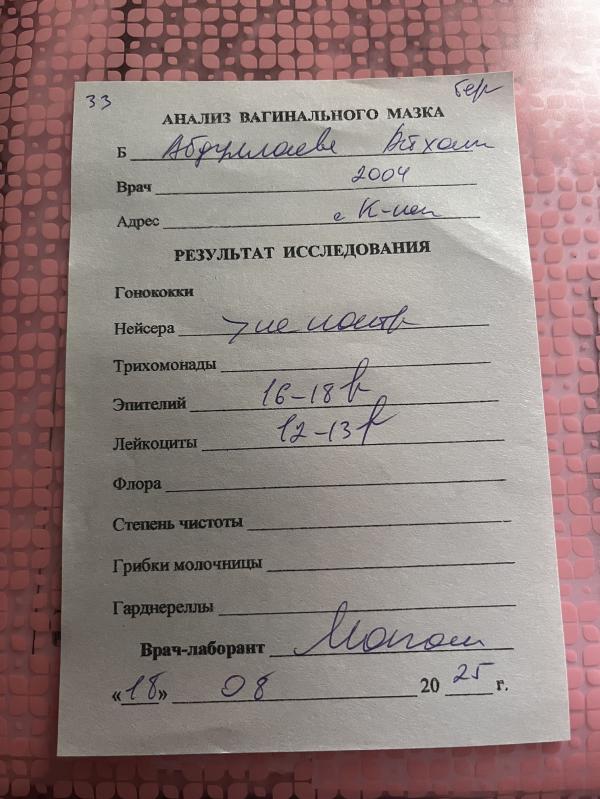 33 бер
АНАЛИЗ ВАГИНАЛЬНОГО МАЗКА
Б Абдуллаева
Врач 2004
Адрес с
РЕЗУЛЬТАТ ИССЛЕДОВАНИЯ
Гонококки
Нейсера не
Трихомонады
Эпителий 16-18
Лейкоциты 12-13
Флора
Степень чистоты
Грибки молочницы
Гарднереллы
Врач-лаборант
«18» 08 2025 г.